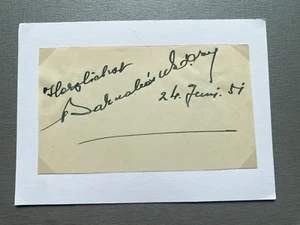 Herzlichst
Barnabás v. Géczy
24. Juni. 51